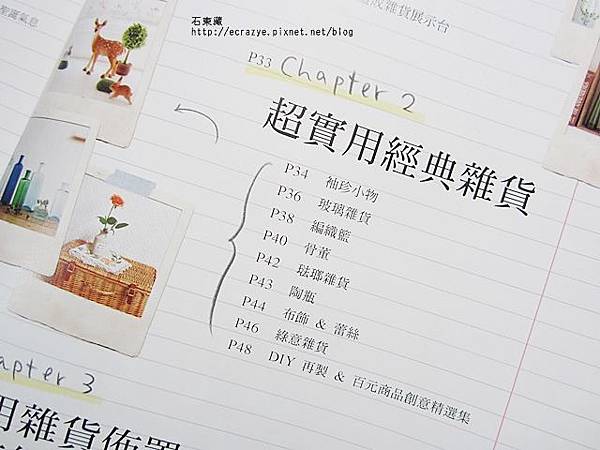 石東藏
http://ecrazye.pixnet.net/blog
P33 Chapter 2
超實用經典雜貨
P34 袖珍小物
P36 玻璃雜貨
P38 編織籃
P40 骨董
P42 琺瑯雜貨
P43 陶瓶
P44 布飾 & 蕾絲
P46 綠意雜貨
P48 DIY 再製 & 百元商品創意精選集
apter 3
用雜貨佈置